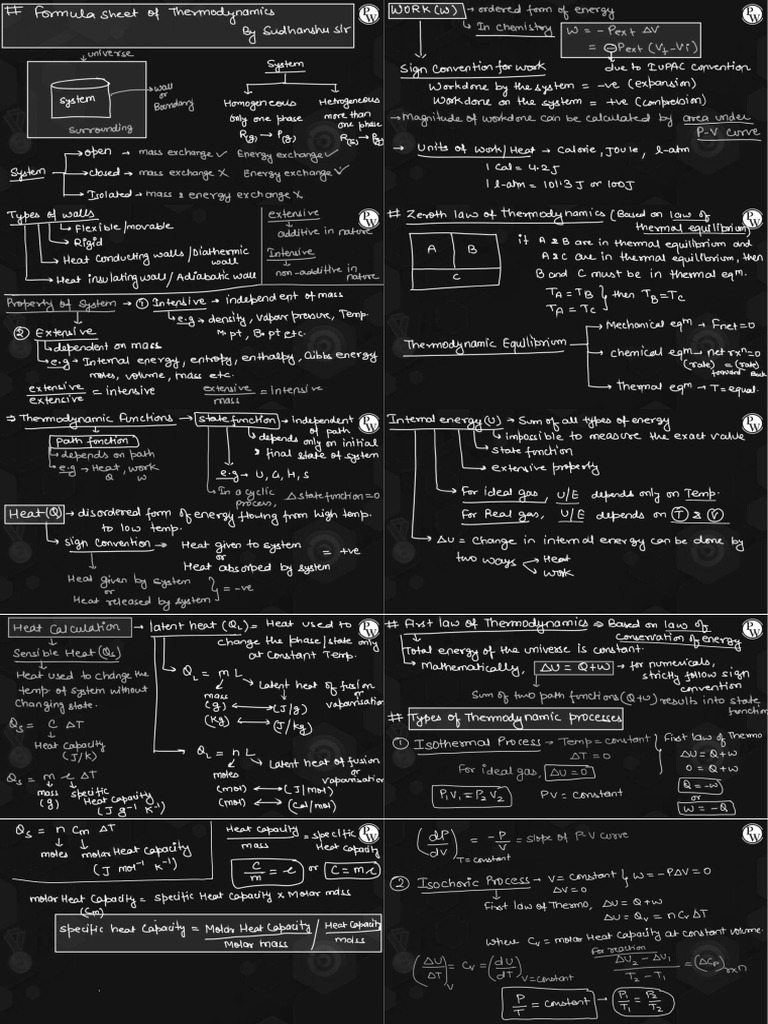 # Formula sheet of Thermodynamics
By Sudhanshu Sir
PW
universe
System
wall
or
Boundary
Surrounding
System
Homogeneous
only one phase
R(g) → P(g)
Hetrogeneous
more than
one phase
R(s) → P(g)
System
open → mass exchange ✓ Energy exchange ✓
closed → mass exchange X Energy exchange ✓
Isolated → mass & energy exchange X
WORK (W) → ordered form of energy
PW
In chemistry
W = -Pext ΔV
= -Pext (Vf - Vi)
due to IUPAC convention
Sign Convention for work
Workdone by the system = -ve (expansion)
Workdone on the system = +ve (compression)
→ Magnitude of workdone can be calculated by area under
P-V curve
→ Units of Work/Heat → Calorie, Joule, l-atm
1 Cal = 4.2 J
1 l-atm = 101.3 J or 100J
Types of walls
Flexible/movable
Rigid
Heat Conducting walls/Diathermic
wall
Heat insulating wall/Adiabatic wall
extensive
additive in nature
Intensive
non-additive in
nature
PW
Property of System → ① Intensive → independent of mass
e.g → density, vapour pressure, Temp.
M.pt, B.pt etc.
② Extensive
dependent on mass
e.g → Internal energy, entropy, enthalpy, Gibbs energy
moles, volume, mass etc.
extensive/extensive = intensive
extensive/mass = Intensive
# Zeroth law of Thermodynamics (Based on law of
thermal equilibrium)
PW
A B
C
if A & B are in thermal equilibrium and
A & C are in thermal equilibrium, then
B and C must be in thermal eqm.
TA = TB
TA = TC } then TB = TC
Thermodynamic Equilibrium
Mechanical eqm → Fnet = 0
chemical eqm → net rxn = 0
(rate)forward = (rate)Back
thermal eqm → T = equal.
⇒ Thermodynamic functions → state function → independent
of path
PW
depends only on initial
& final state of system
e.g → U, G, H, S
In a cyclic
process, Δstate function = 0
path function
depends on path
e.g → Heat, work
Q W
Heat (Q) → disordered form of energy flowing from high temp.
to low temp.
Sign Convention → Heat given to system
or
Heat absorbed by system = +ve
Heat given by system
or
Heat released by system } = -ve
Internal energy (U) → Sum of all types of energy
PW
impossible to measure the exact value
state function
extensive property
For ideal gas, U/E depends only on Temp.
For Real gas, U/E depends on T & V
ΔU = change in internal energy can be done by
two ways
Heat
Work
Heat Calculation → latent heat (QL) = Heat used to
change the phase/state only
at Constant Temp.
PW
Sensible Heat (Qs)
Heat used to change the
temp of system without
Changing state.
Qs = C ΔT
Heat Capacity
(J/K)
Qs = m c ΔT
mass
(g)
specific
Heat Capacity
(J g⁻¹ K⁻¹)
QL = m L
mass
Latent heat of fusion
or
vaporisation
(g) ↔ (J/g)
(Kg) ↔ (J/kg)
QL = n L
moles
Latent heat of fusion
or
vaporisation
(mol) ↔ (J/mol)
(mol) ↔ (Cal/mol)
# First law of Thermodynamics → Based on law of
conservation of energy
PW
Total energy of the universe is constant.
Mathematically, ΔU = Q+W → for numericals,
strictly follow sign
convention
Sum of two path functions (Q+W) results into state
function
# Types of Thermodynamic processes
① Isothermal Process → Temp = constant
ΔT = 0
For ideal gas, ΔU = 0
P₁V₁ = P₂V₂ PV = constant
First law of Thermo
ΔU = Q+W
0 = Q+W
Q = -W
or
W = -Q
Qs = n Cm ΔT
moles
molar Heat Capacity
(J mol⁻¹ K⁻¹)
Heat Capacity/mass = specific
Heat Capacity
PW
C/m = c or C = mc
molar Heat Capacity = specific Heat Capacity x Molar mass
(Cm)
specific heat Capacity = Molar Heat Capacity/Molar mass / Heat Capacity/mass
(dP/dV)T=constant = -P/V = slope of P-V curve
PW
② Isochoric Process → V = constant
ΔV = 0 } W = -PΔV = 0
First law of Thermo, ΔU = Q+W
ΔU = Qv = nCvΔT
Where Cv = molar Heat Capacity at constant volume.
(ΔU/ΔT)V = Cv = (dU/dT)V=constant
For reaction
ΔU₂ - ΔU₁/T₂ - T₁ = (ΔCp)rxn
P/T = constant → P₁/T₁ = P₂/T₂